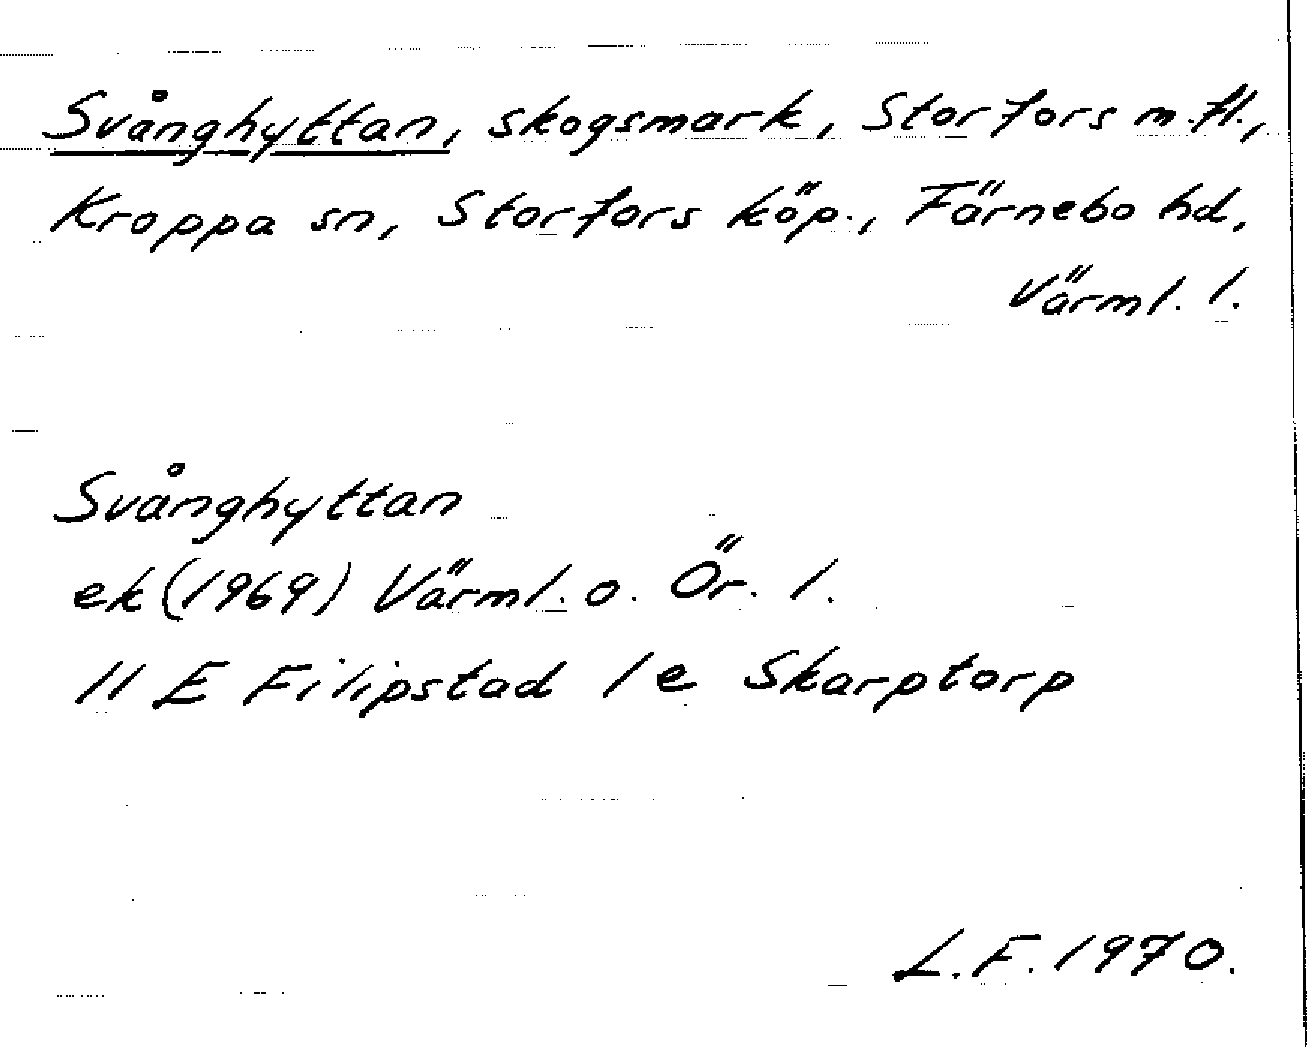 Svånghyttan, skogsmark, Storfors m.fl.,
Kroppa sn, Storfors köp., Färnebo hd,
Värml. l.
Svånghyttan
ek (1969) Värml. o. Ör. l.
11 E Filipstad 1e Skarptorp
L.F. 1970.